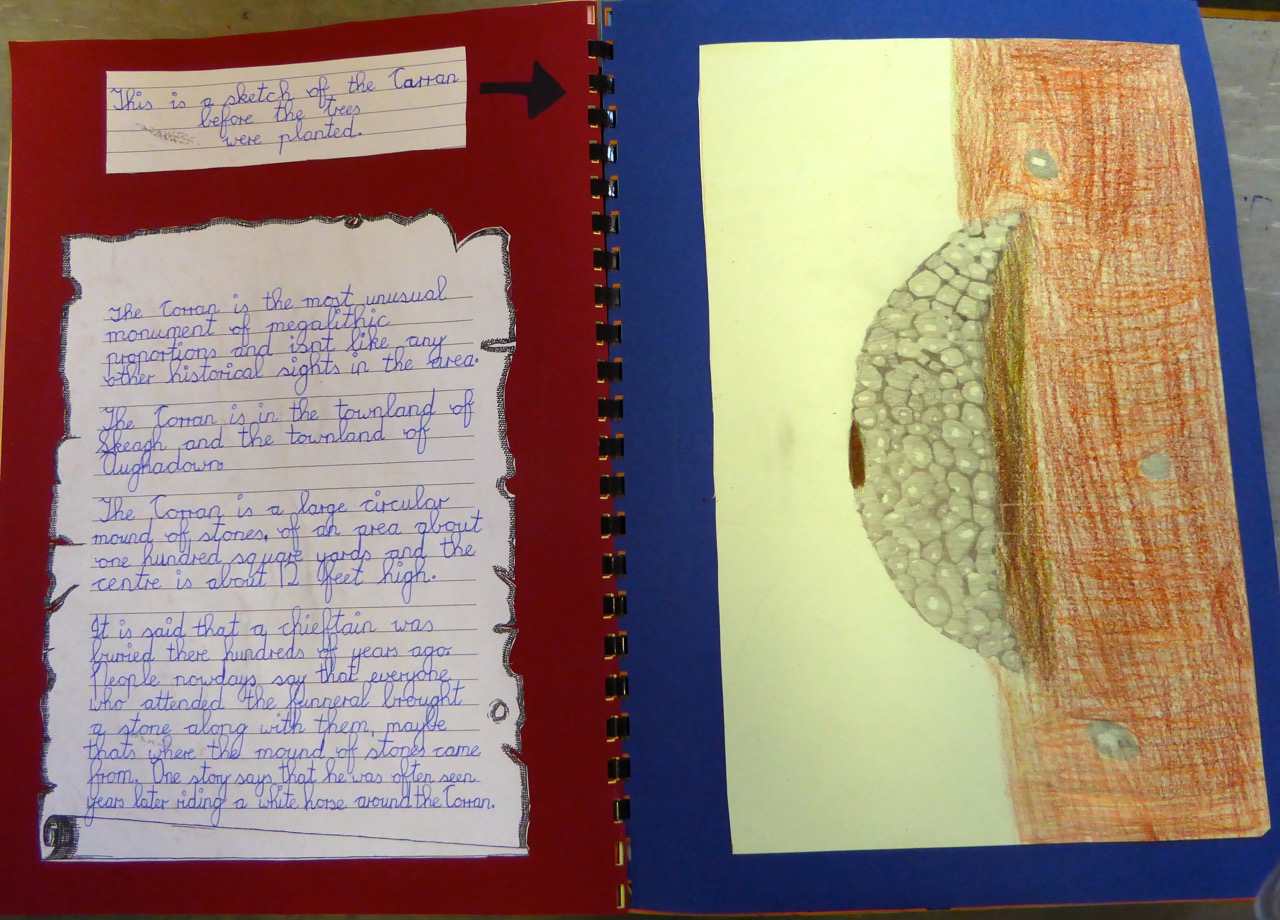 This is a sketch of the Carran
before the trees
were planted.
The Corran is the most unusual
monument of megalithic
proportions and isnt like any
other historical sights in the area.
The Corran is in the townland of
Skeagh and the townland of
Aughadown.
The Corran is a large circular
mound of stones, of an area about
one hundred square yards and the
centre is about 12 feet high.
It is said that a chieftain was
buried there hundreds of years ago.
People nowdays say that everyone
who attended the funneral brought
a stone along with them, maybe
thats where the mound of stones came
from. One story says that he was often seen
years later riding a white horse around the Corran.